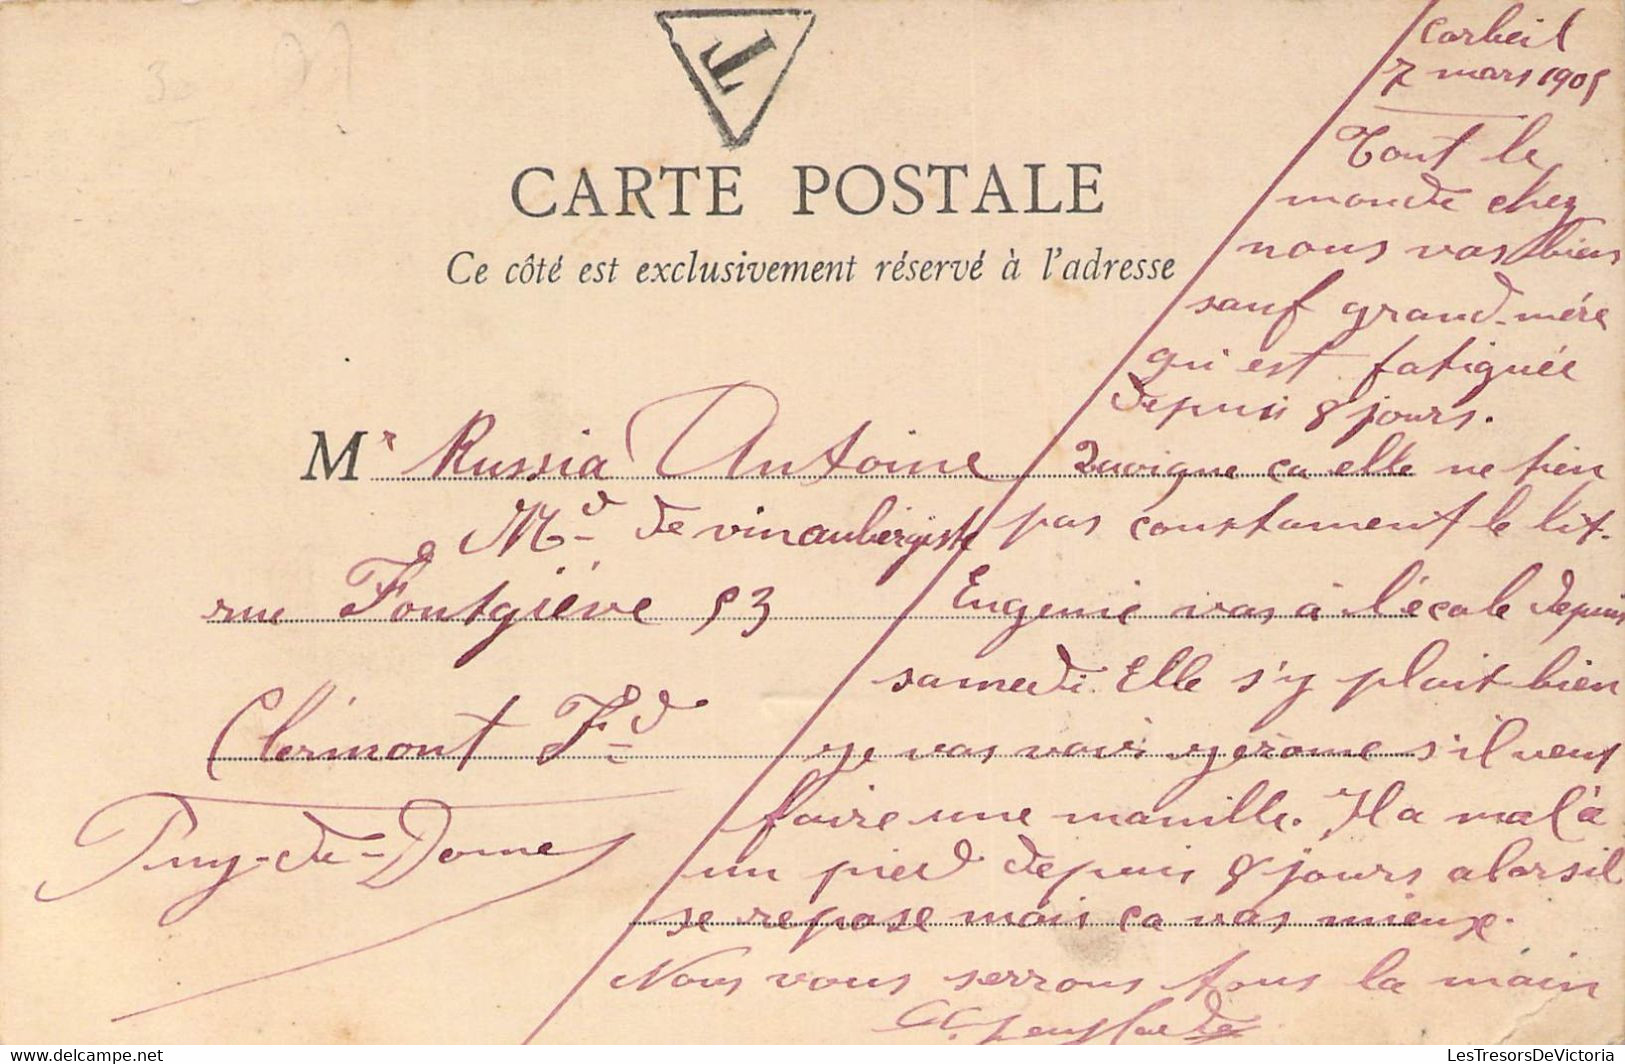 T
CARTE POSTALE
Ce côté est exclusivement réservé à l'adresse
Mr Russia Antoine
Md de vin aubergiste
rue Fontgiève 53
Clermont Fd
Puy-de-Dome
Corbeil
7 mars 1905
Tout le
monde chez
nous vas bien
sauf grand-mère
qui est fatiguée
depuis 8 jours.
ça elle ne tien
pas constament le lit.
Eugenie vas à l'école depuis
samedi. Elle s'y plait bien
je vas voir jerome s'il veut
faire une manille. Il a mal à
un pied depuis 8 jours alors il
se repose mais ça vas mieux.
Nous vous serrons tous la main
LesTresorsDeVictoria
les-tresors-de-victoria.delcampe.net